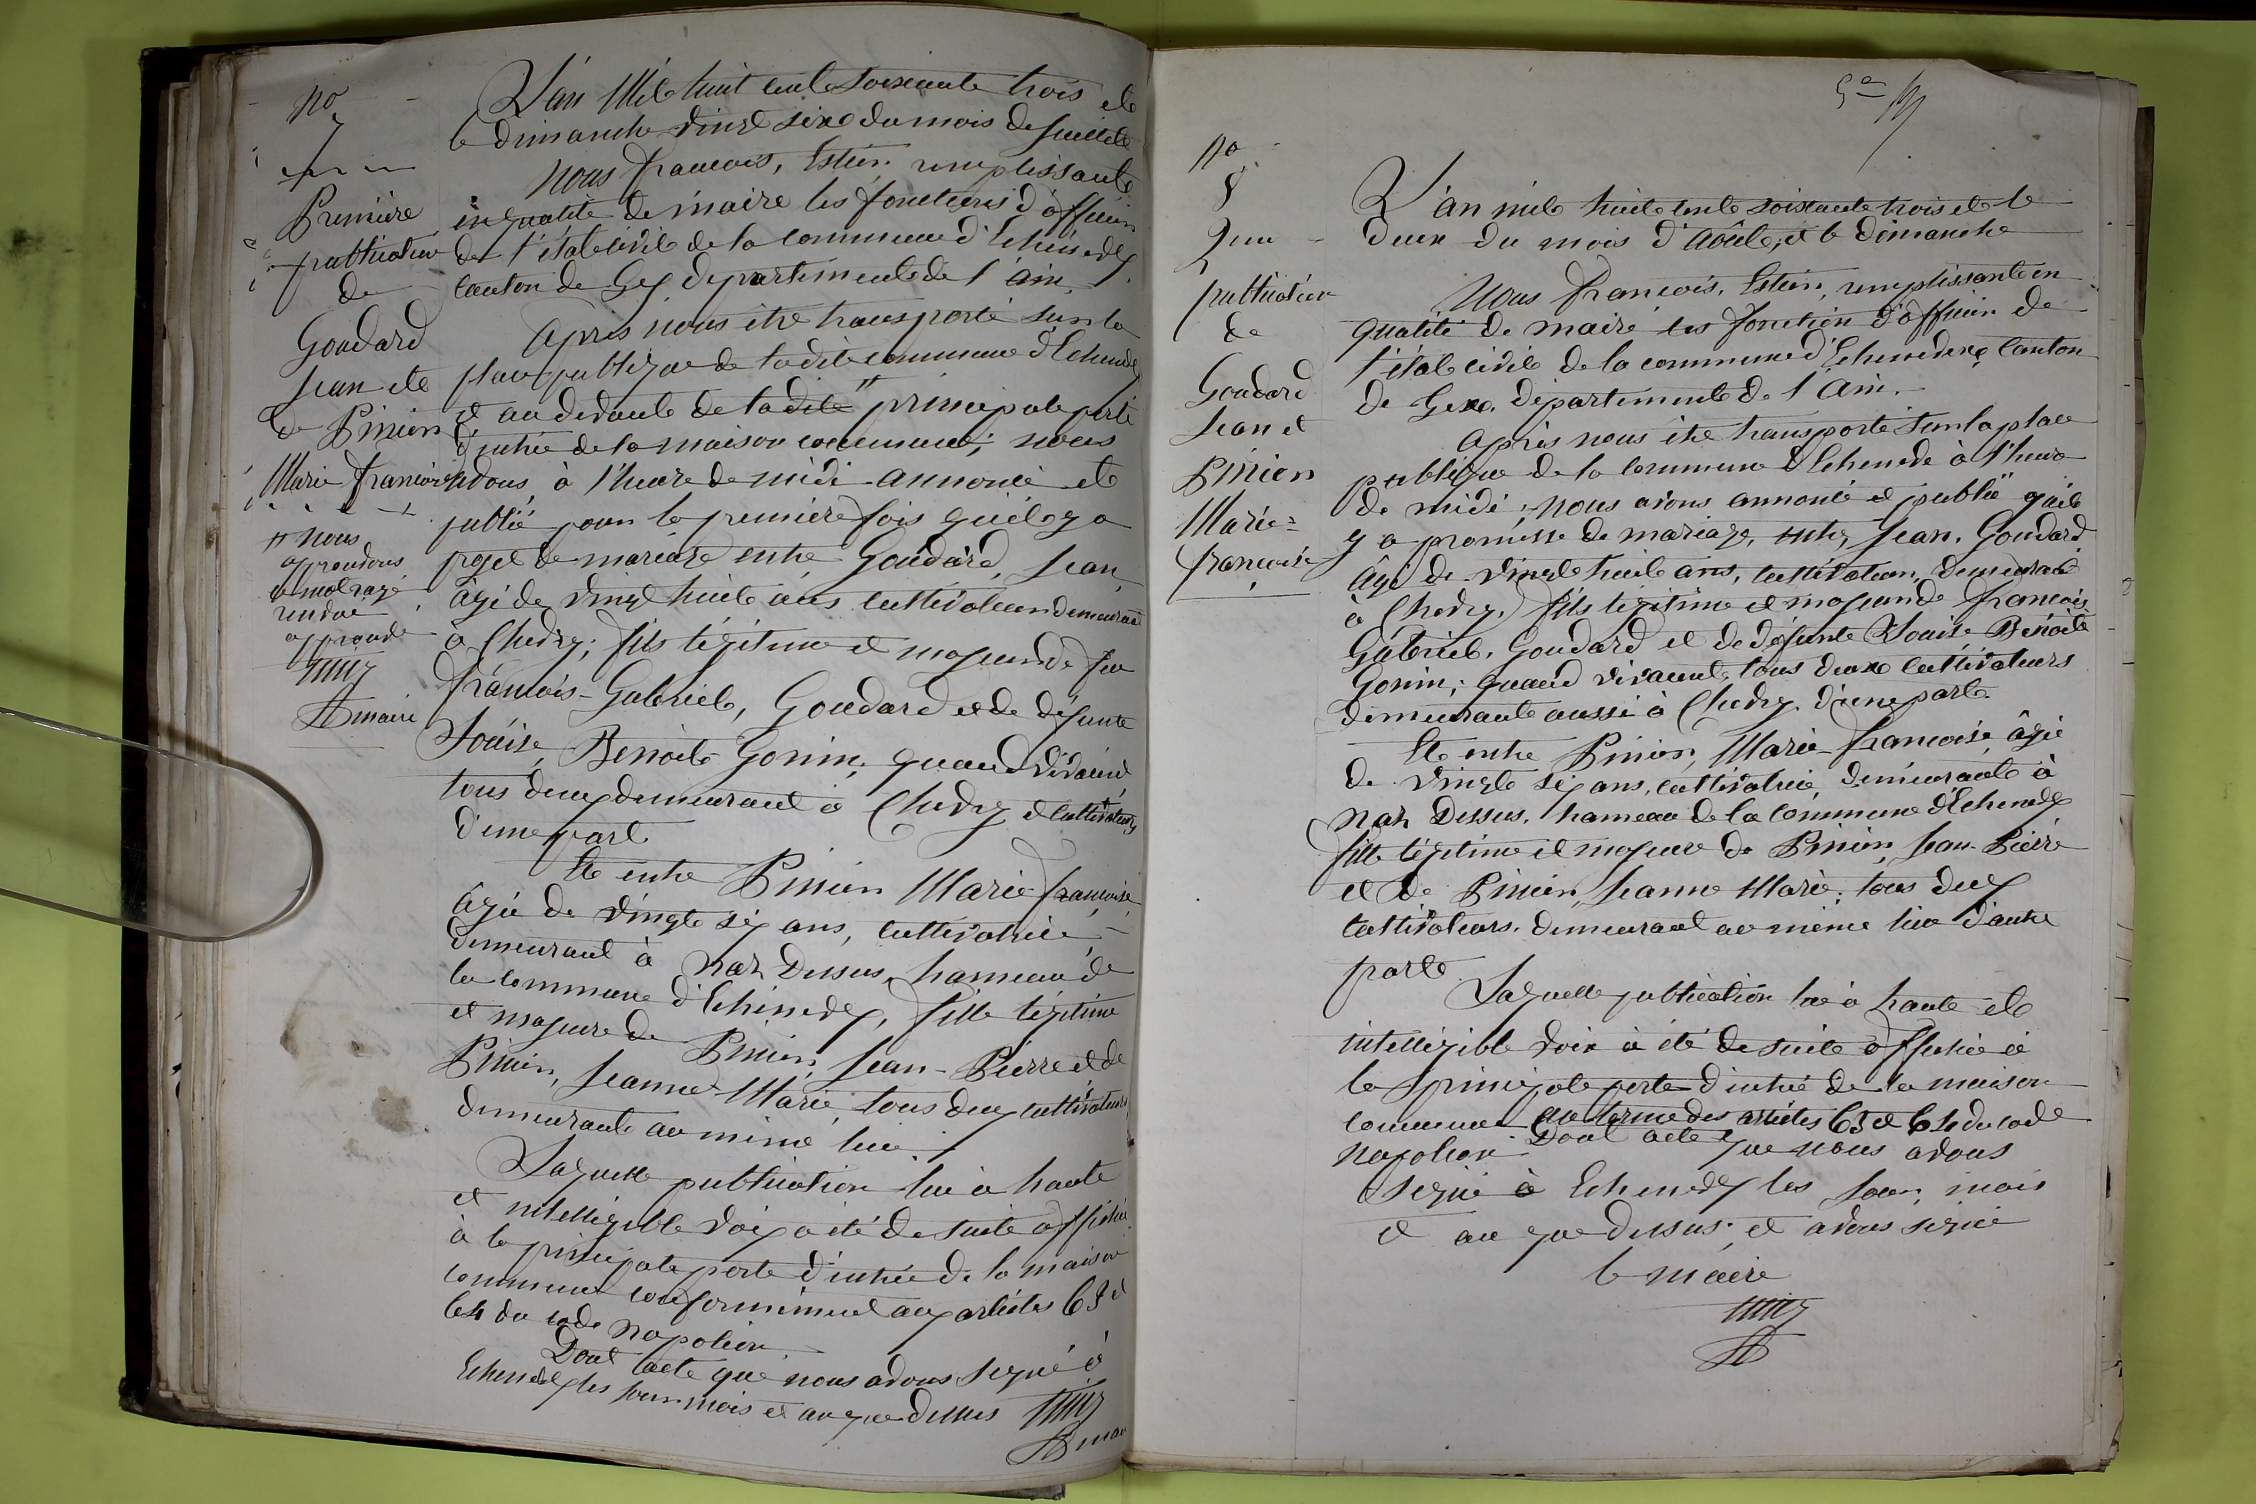 No
7
Première
publication
de
Goudard
Jean et
de Pinier
Marie françoise
# nous
approuvons
le mot rayé
rendue
approuvé
maire
L'an Mil huit cent soixante trois et
le dimanche vingt sixe du mois de Juillet
Nous françois, Estier, remplissante
en qualité de maire les fonctions d'officier
de l'état civil de la commune d'Echenedex
canton de Gex département de l'ain.
Après nous être transporté sur la
place publique de ladite commune d'Echenedex
et au devant de ladite # principale porte
d'entrée de la maison commune; nous
avons, à l'heure de midi annoncé et
publié pour la première fois qu'il y a
projet de mariage entre Goudard, Jean,
âgé de vingt huit ans cultivateur demeurant
à Chevry; fils légitime et majeur de feu
françois-Gabriel, Goudard et de défunte
Louise, Benoite Gonin, quand vivaient
tous deux demeurant à Chevry et cultivateurs
d'une part
Et entre Pinier Marie françoise
âgée de vingt six ans, cultivatrice,
demeurant à naz Dessus, hameau de
la commune d'Echenedex, fille légitime
et majeure de Pinier, Jean-Pierre et de
Pinier, Jeanne-Marie, tous deux cultivateurs
demeurante au même lieu.
Laquelle publication lue à haute
et intelligible voix a été de suite affichée
à la principale porte d'entrée de la maison
commune conformément aux articles 63 et
64 du code napoléon.
Dont acte que nous avons signé à
Echenedex les jour mois et an que dessus
5e
No
8
2me
publication
de
Goudard
Jean et
Pinier
Marie=
françoise
L'an mil huit cent soixante trois et le
deux du mois d'Août, et le dimanche
Nous françois, Estier, remplissante en
qualité de maire les fonction d'officier de
l'état civil de la commune d'Echenedexe canton
de Gexe, département de l'ain.
Après nous être transporté sur la place
publique de la commune d'Echenede à l'heure
de midi; nous avons annoncé et publié qu'il
y a promesse de mariage, entre, Jean, Goudard
âgé de vingt huit ans, cultivateur, demeurant
à Chevry, fils légitime et majeur de françois
Gabriel, Goudard et de défunte Louise Benoite
Gonin; quand vivaient tous deuxe cultivateurs
demeurante aussi à Chevry. d'une parte
Et entre Pinier, Marie-françoise, âgée
de vingt six ans, cultivatrice, demeurante à
naz Dessus, hameau de la commune d'Echenedex
fille légitime et majeure de Pinier, Jean Pierre
et de Pinier, Jeanne Marie; tous deux
cultivateurs, demeurant au même lieu d'autre
parte
Laquelle publication lue à haute et
intelligible voix à été de suite affichée à
la principale porte d'entrée de la maison
commune au terme des articles 63 et 64 du code
napoléon. Dont acte que nous avons
signé à Echenedex les jour, mois
et an que dessus; et avons signé
le maire